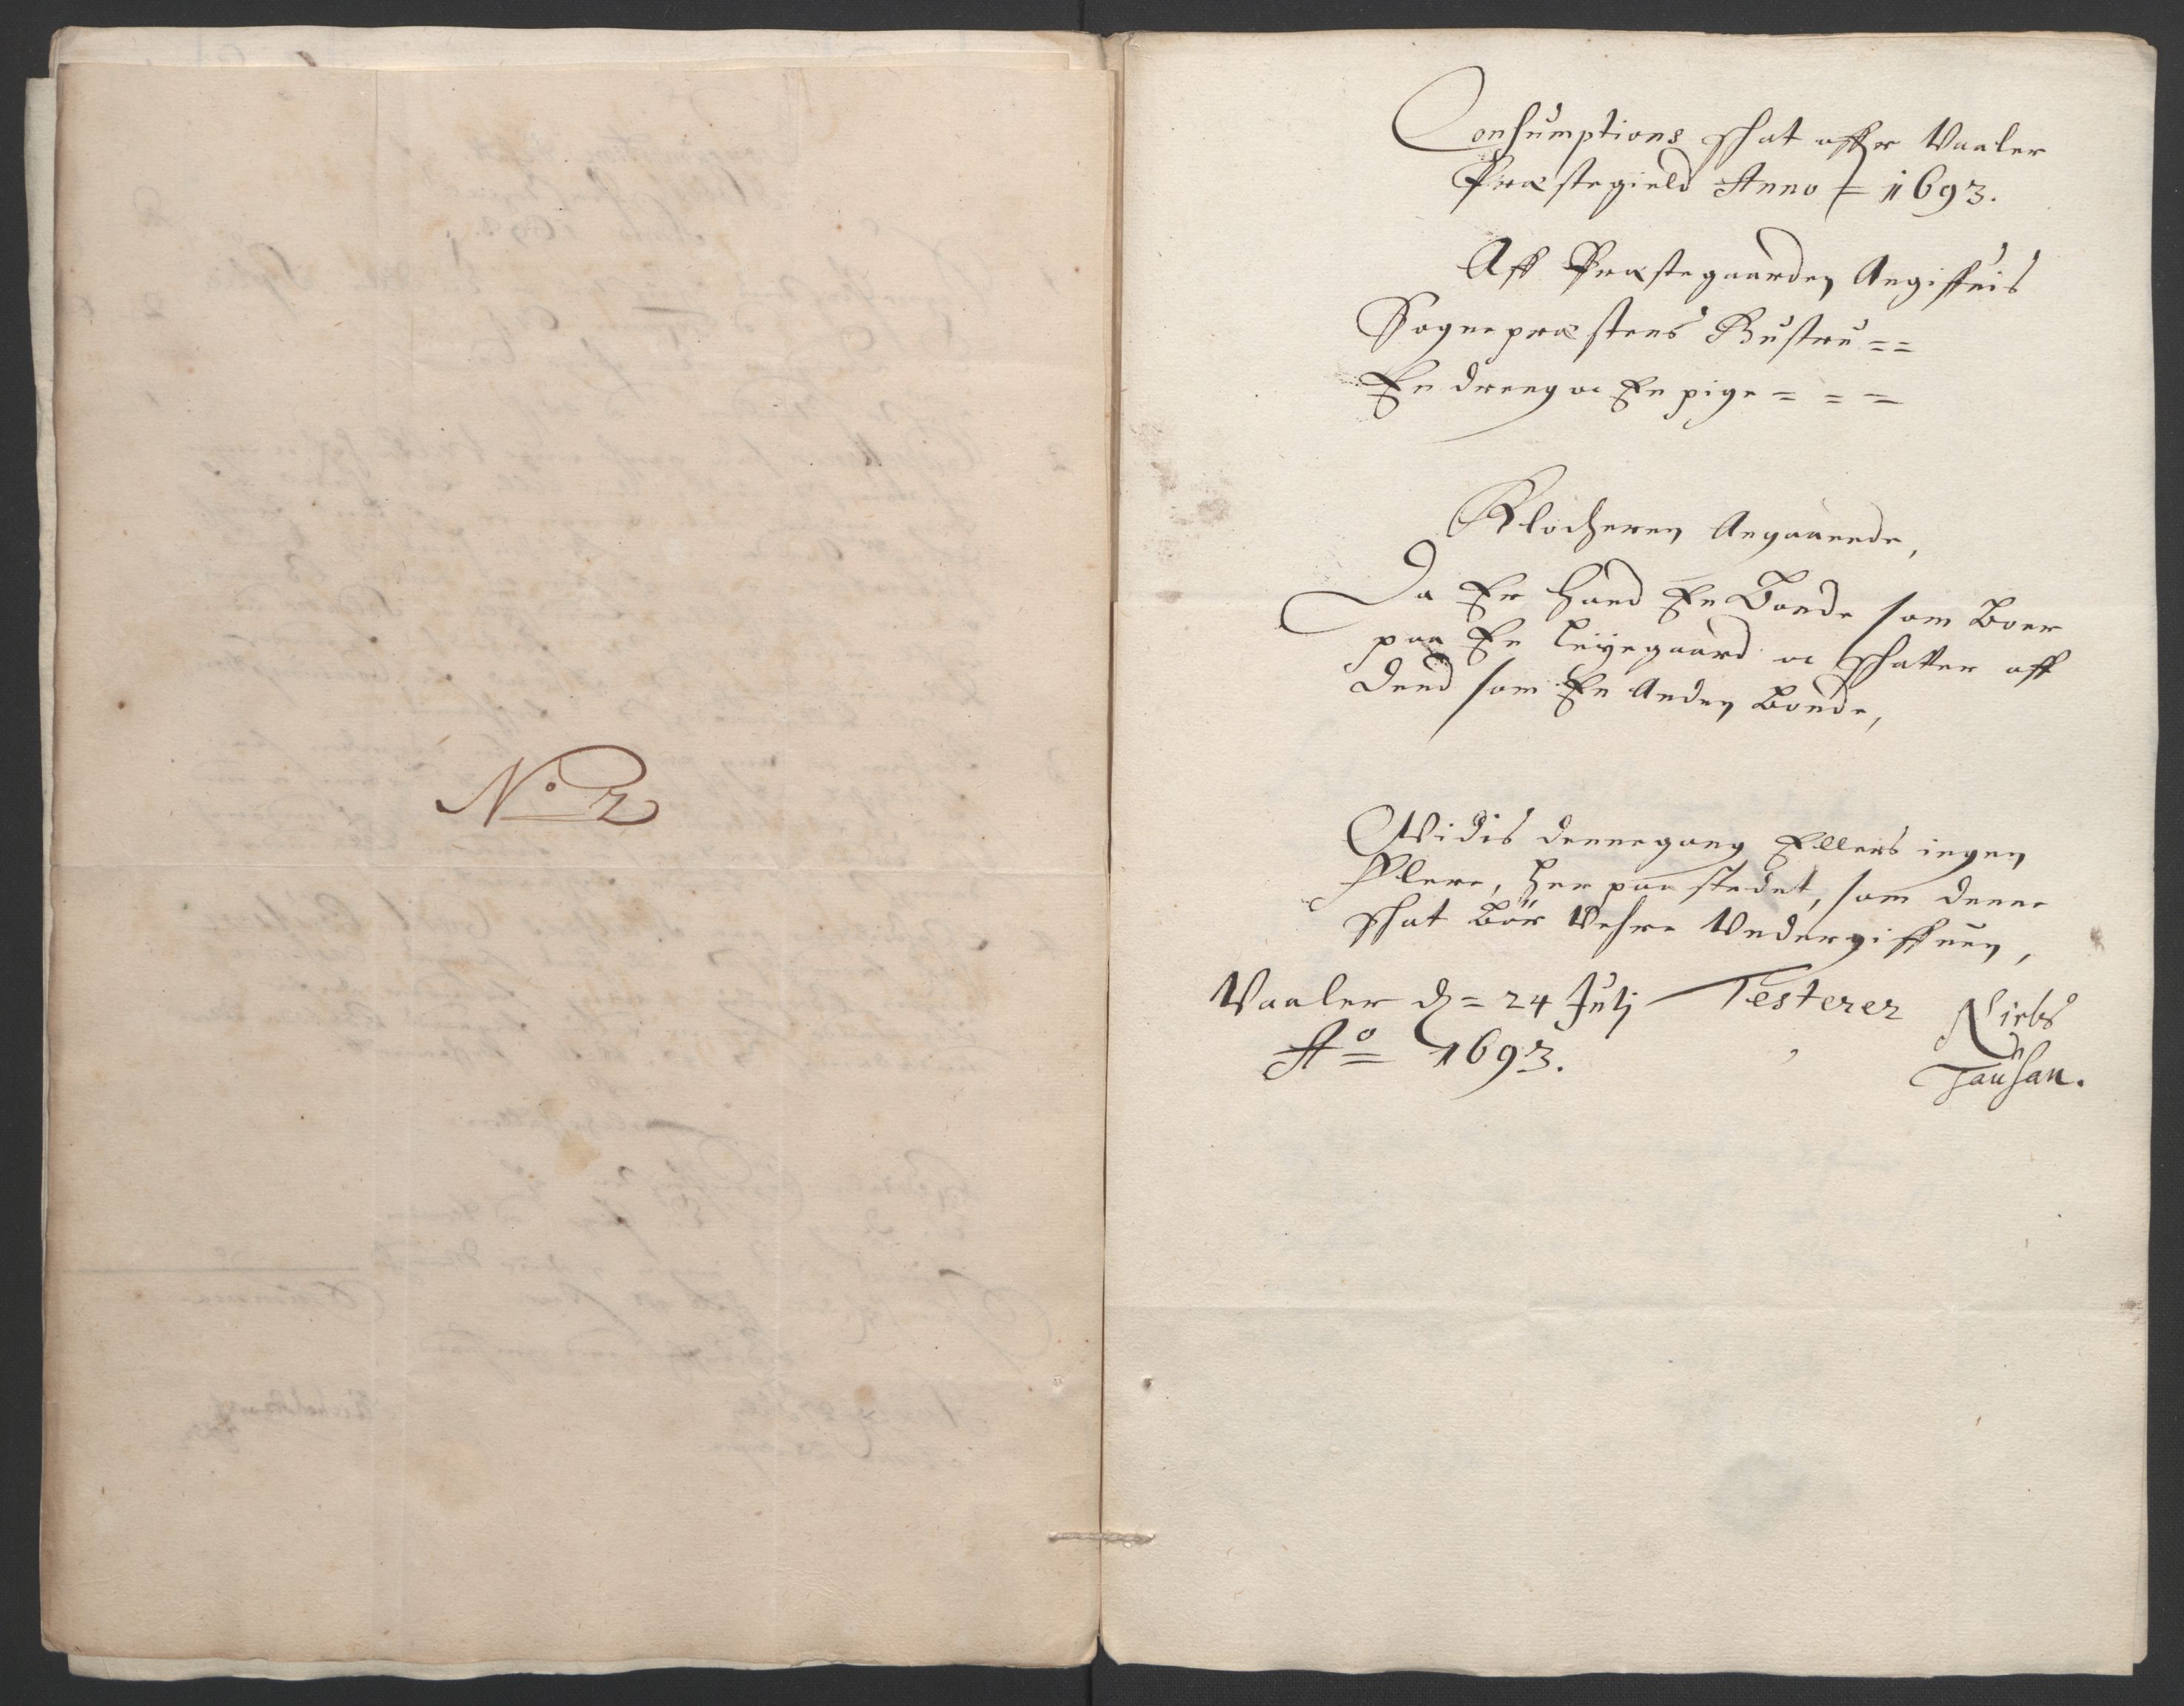 No 2
Consumptions Schat affver Vaaler
Præstegield Anno = 1693.
Aff Præstegaarden Angiffvis
Sognepræstens Hustru ==
En dreng oc En pige = = =
Klocheren Angaaende,
Da Er hand En Bonde som Boer
paa En Leyegaard oc Schatter aff
dend som En Anden Bonde,
Widis dennegang Ellers ingen
Flere, her paa stedet, som denne
Schat Bör Vehre Undergiffven,
Vaaler d = 24 Julj Testerer Niels
Ao = 1693. Tausan.